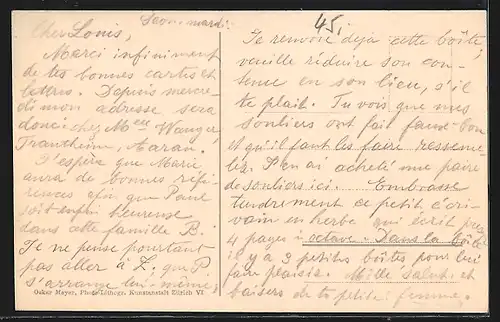 Savon. mardi.
Cher Louis,
Merci infiniment
de tes bonnes cartes et
lettres. Depuis mercre-
di mon adresse sera
donc: chez Mme Wanger
Aarau.
J'espère que Marie
aura de bonnes réfé-
rences afin que Paul
soit enfin heureuse
dans cette famille B.
Je ne pense pourtant
pas aller à Z, que P.
s'arrange lui-même,
Oskar Meyer, Photo-Lithogr. Kunstanstalt Zürich VI
45.
Je renvoie déjà cette boîte,
veuille réduire son con-
tenu en son lieu, s'il
te plait. Tu vois que mes
souliers ont fait faux-bon
et qu'il faut les faire resseme-
ler. J'en ai acheté une paire
de souliers ici. Embrasse
tendrement ce petit écri-
vain en herbe qui écrit
4 pages octave. Dans la boîte
il y a 3 petites boîtes pour lui
faire plaisir. Mille saluts et
baisers de ta petite femme.